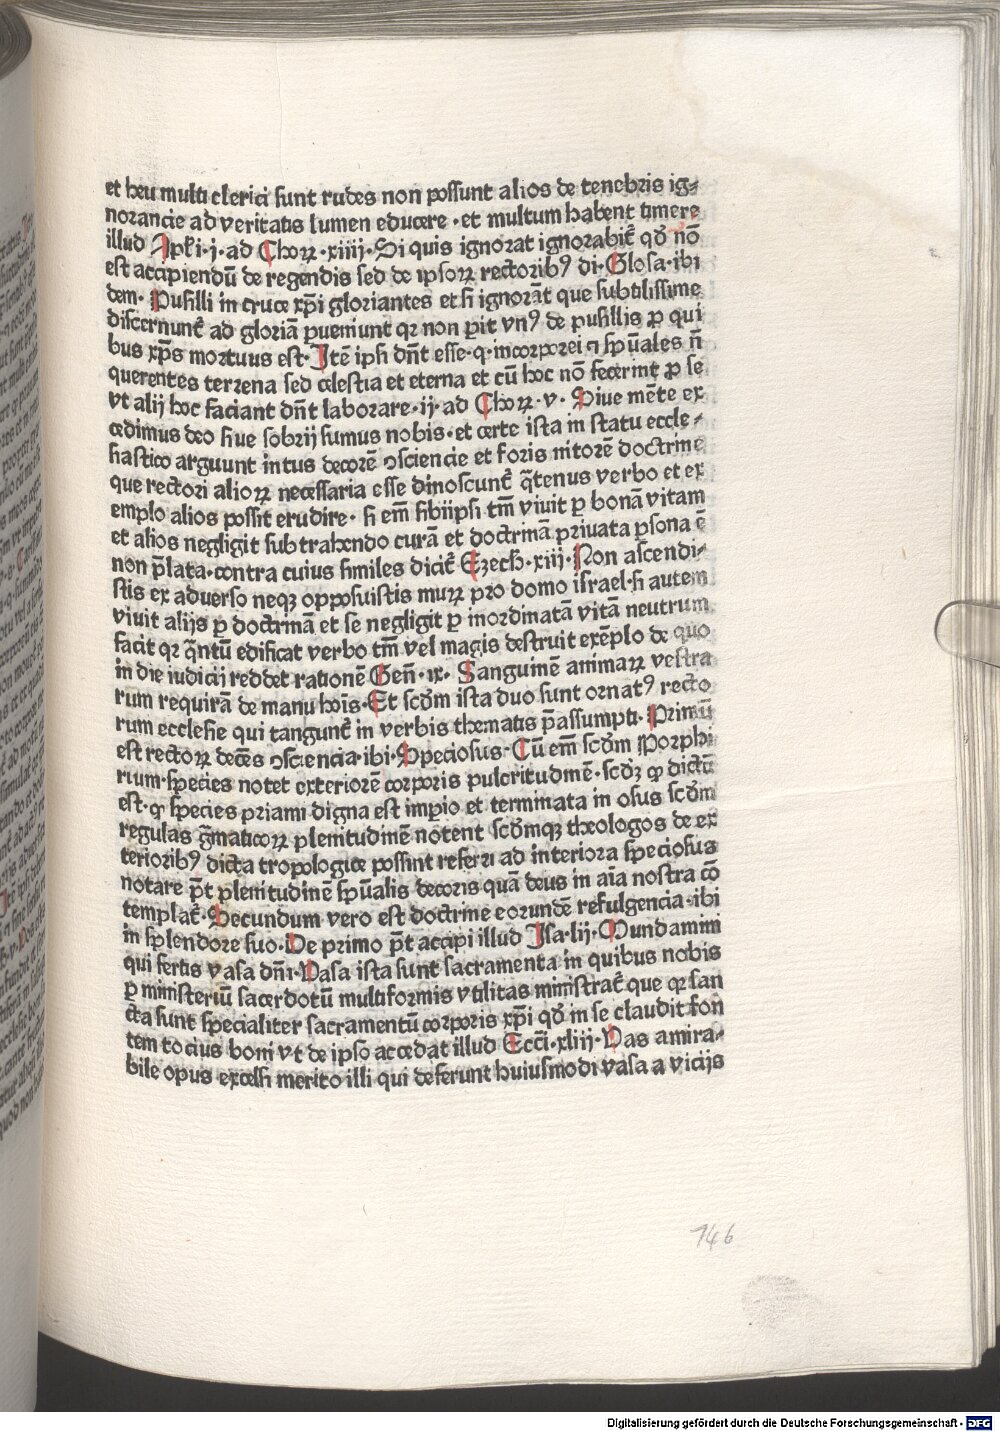 et heu multi clerici sunt rudes non possunt alios de tenebris ig⸗
norancie ad veritatis lumen educere · et multum habent timere
illud Apľi · j · ad Choꝝ · xiiii · Si quis ignorat ignorabit̉ qđ nō
est accipiendū de regendis sed de ipsoꝝ rectoribꝰ di · Glosa · ibi
dem · Pusilli in cruce xp̄i gloriantes et si ignorāt que subtilissime
discernunt̉ ad gloriā ꝑueniunt qꝛ non ꝑit vnꝰ de pusillis ꝓ qui
bus xp̄s mortuus est · Itē ipsi dn̄t esse · q · incorporei ⁊ sp̄uales n̄
querentes terrena sed celestia et eterna et cū hoc nō fecerint ꝓ se
vt alij hoc faciant dn̄t laborare · ij · ad Choꝝ · v · Siue mēte ex
cedimus deo siue sobrij sumus nobis · et certe ista in statu eccle⸗
siastico arguunt intus decorē ꝯsciencie et foris nitorē doctrine
que rectori alioꝝ necessaria esse dinoscunt̉ q̄tenus verbo et ex
emplo alios possit erudire · si em̄ sibiipsi tm̄ viuit ꝑ bonā vitam
et alios negligit subtrahendo curā et doctrinā priuata ꝑsona ē
non p̄lata · contra cuius similes dicit̉ Ezech · xiii · Non ascendi⸗
stis ex aduerso neqꝫ opposuistis murꝝ pro domo israel · si autem
viuit alijs ꝑ doctrinā et se negligit ꝑ inordinatā vitā neutrum
facit qꝛ q̄ntū edificat verbo tm̄ vel magis destruit exēplo de quo
in die iudicij reddet rationē Gen̄ · ix · Sanguinē animaꝝ vestra
rum requirā de manu hoīs · Et scđm ista duo sunt ornatꝰ recto
rum ecclesie qui tangunt̉ in verbis thematis p̄assumpti · Primū
est rectoꝝ decēs ꝯsciencia · ibi · Speciosus · Cū em̄ scđm Porphi
rium · species notet exteriorē corporis pulcritudinē · scđꝫ ꝙ dictū
est · ꝙ species priami digna est imꝑio et terminata in osus scđm
regulas g̅maticoꝝ plenitudinē notent scđmqꝫ theologos de ex
terioribꝰ dicta tropologice possint referri ad interiora speciosus
notare p̄t plenitudinē sp̄ualis decoris quā deus in aīa nostra cō
templat̉ · Secundum vero est doctrine eorundē refulgencia · ibi
in splendore suo · De primo p̄t accipi illud Isa · lij · Mundamini
qui fertis vasa dn̄i · Vasa ista sunt sacramenta in quibus nobis
ꝑ ministeriū sacerdotū multiformis vtilitas ministrat̉ que qꝛ san
cta sunt specialiter sacramentū corporis xp̄i qđ in se claudit fon
tem tocius boni vt de ipso accedat illud Ecc̄i · xliij · Vas amira⸗
bile opus excelsi merito illi qui deferunt huiusmodi vasa a vicijs
146
Digitalisierung gefördert durch die Deutsche Forschungsgemeinschaft - DFG